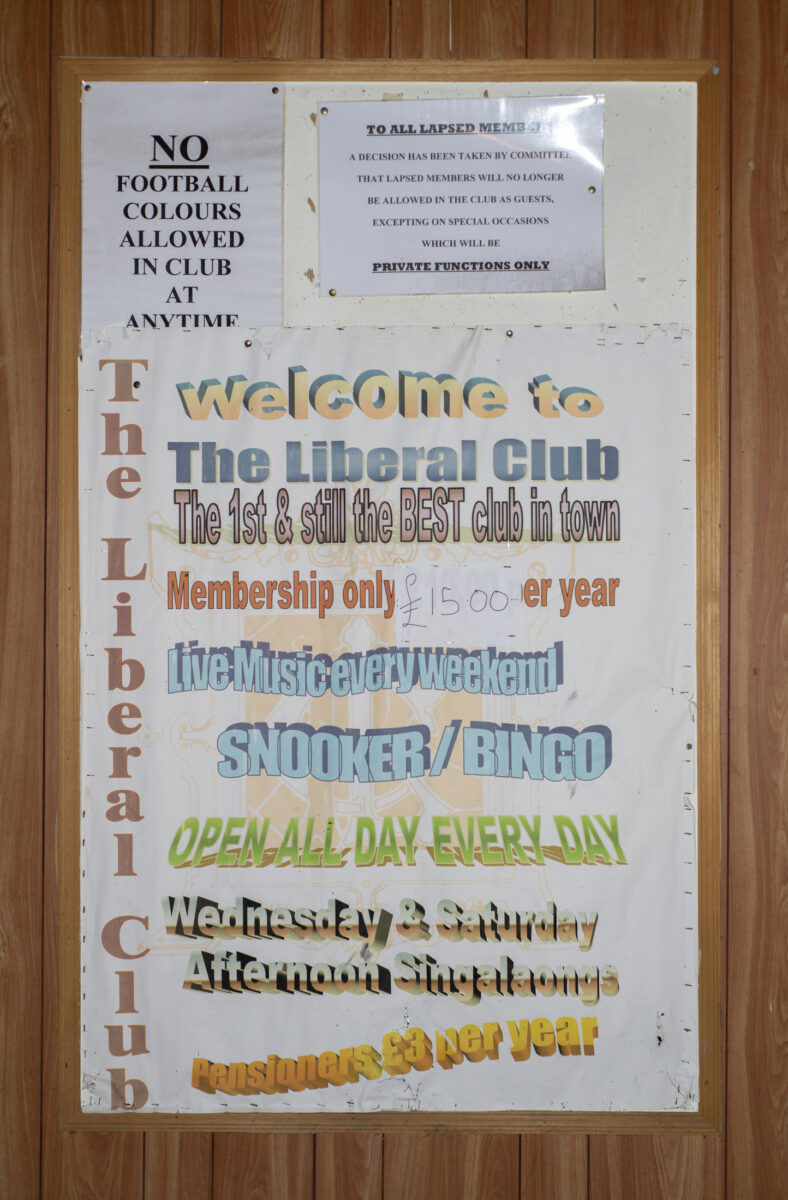 NO
FOOTBALL
COLOURS
ALLOWED
IN CLUB
AT
ANYTIME
TO ALL LAPSED
A DECISION HAS BEEN TAKEN BY COMMITTEE
THAT LAPSED MEMBERS WILL NO LONGER
BE ALLOWED IN THE CLUB AS GUESTS,
EXCEPTING ON SPECIAL OCCASIONS
WHICH WILL BE
PRIVATE FUNCTIONS ONLY
The Liberal Club
Welcome to
The Liberal Club
The 1st & still the BEST club in town
Membership only £15-00- er year
Live Music every weekend
SNOOKER / BINGO
OPEN ALL DAY EVERY DAY
Wednesday & Saturday
Afternoon Singalaongs
Pensioners £3 per year